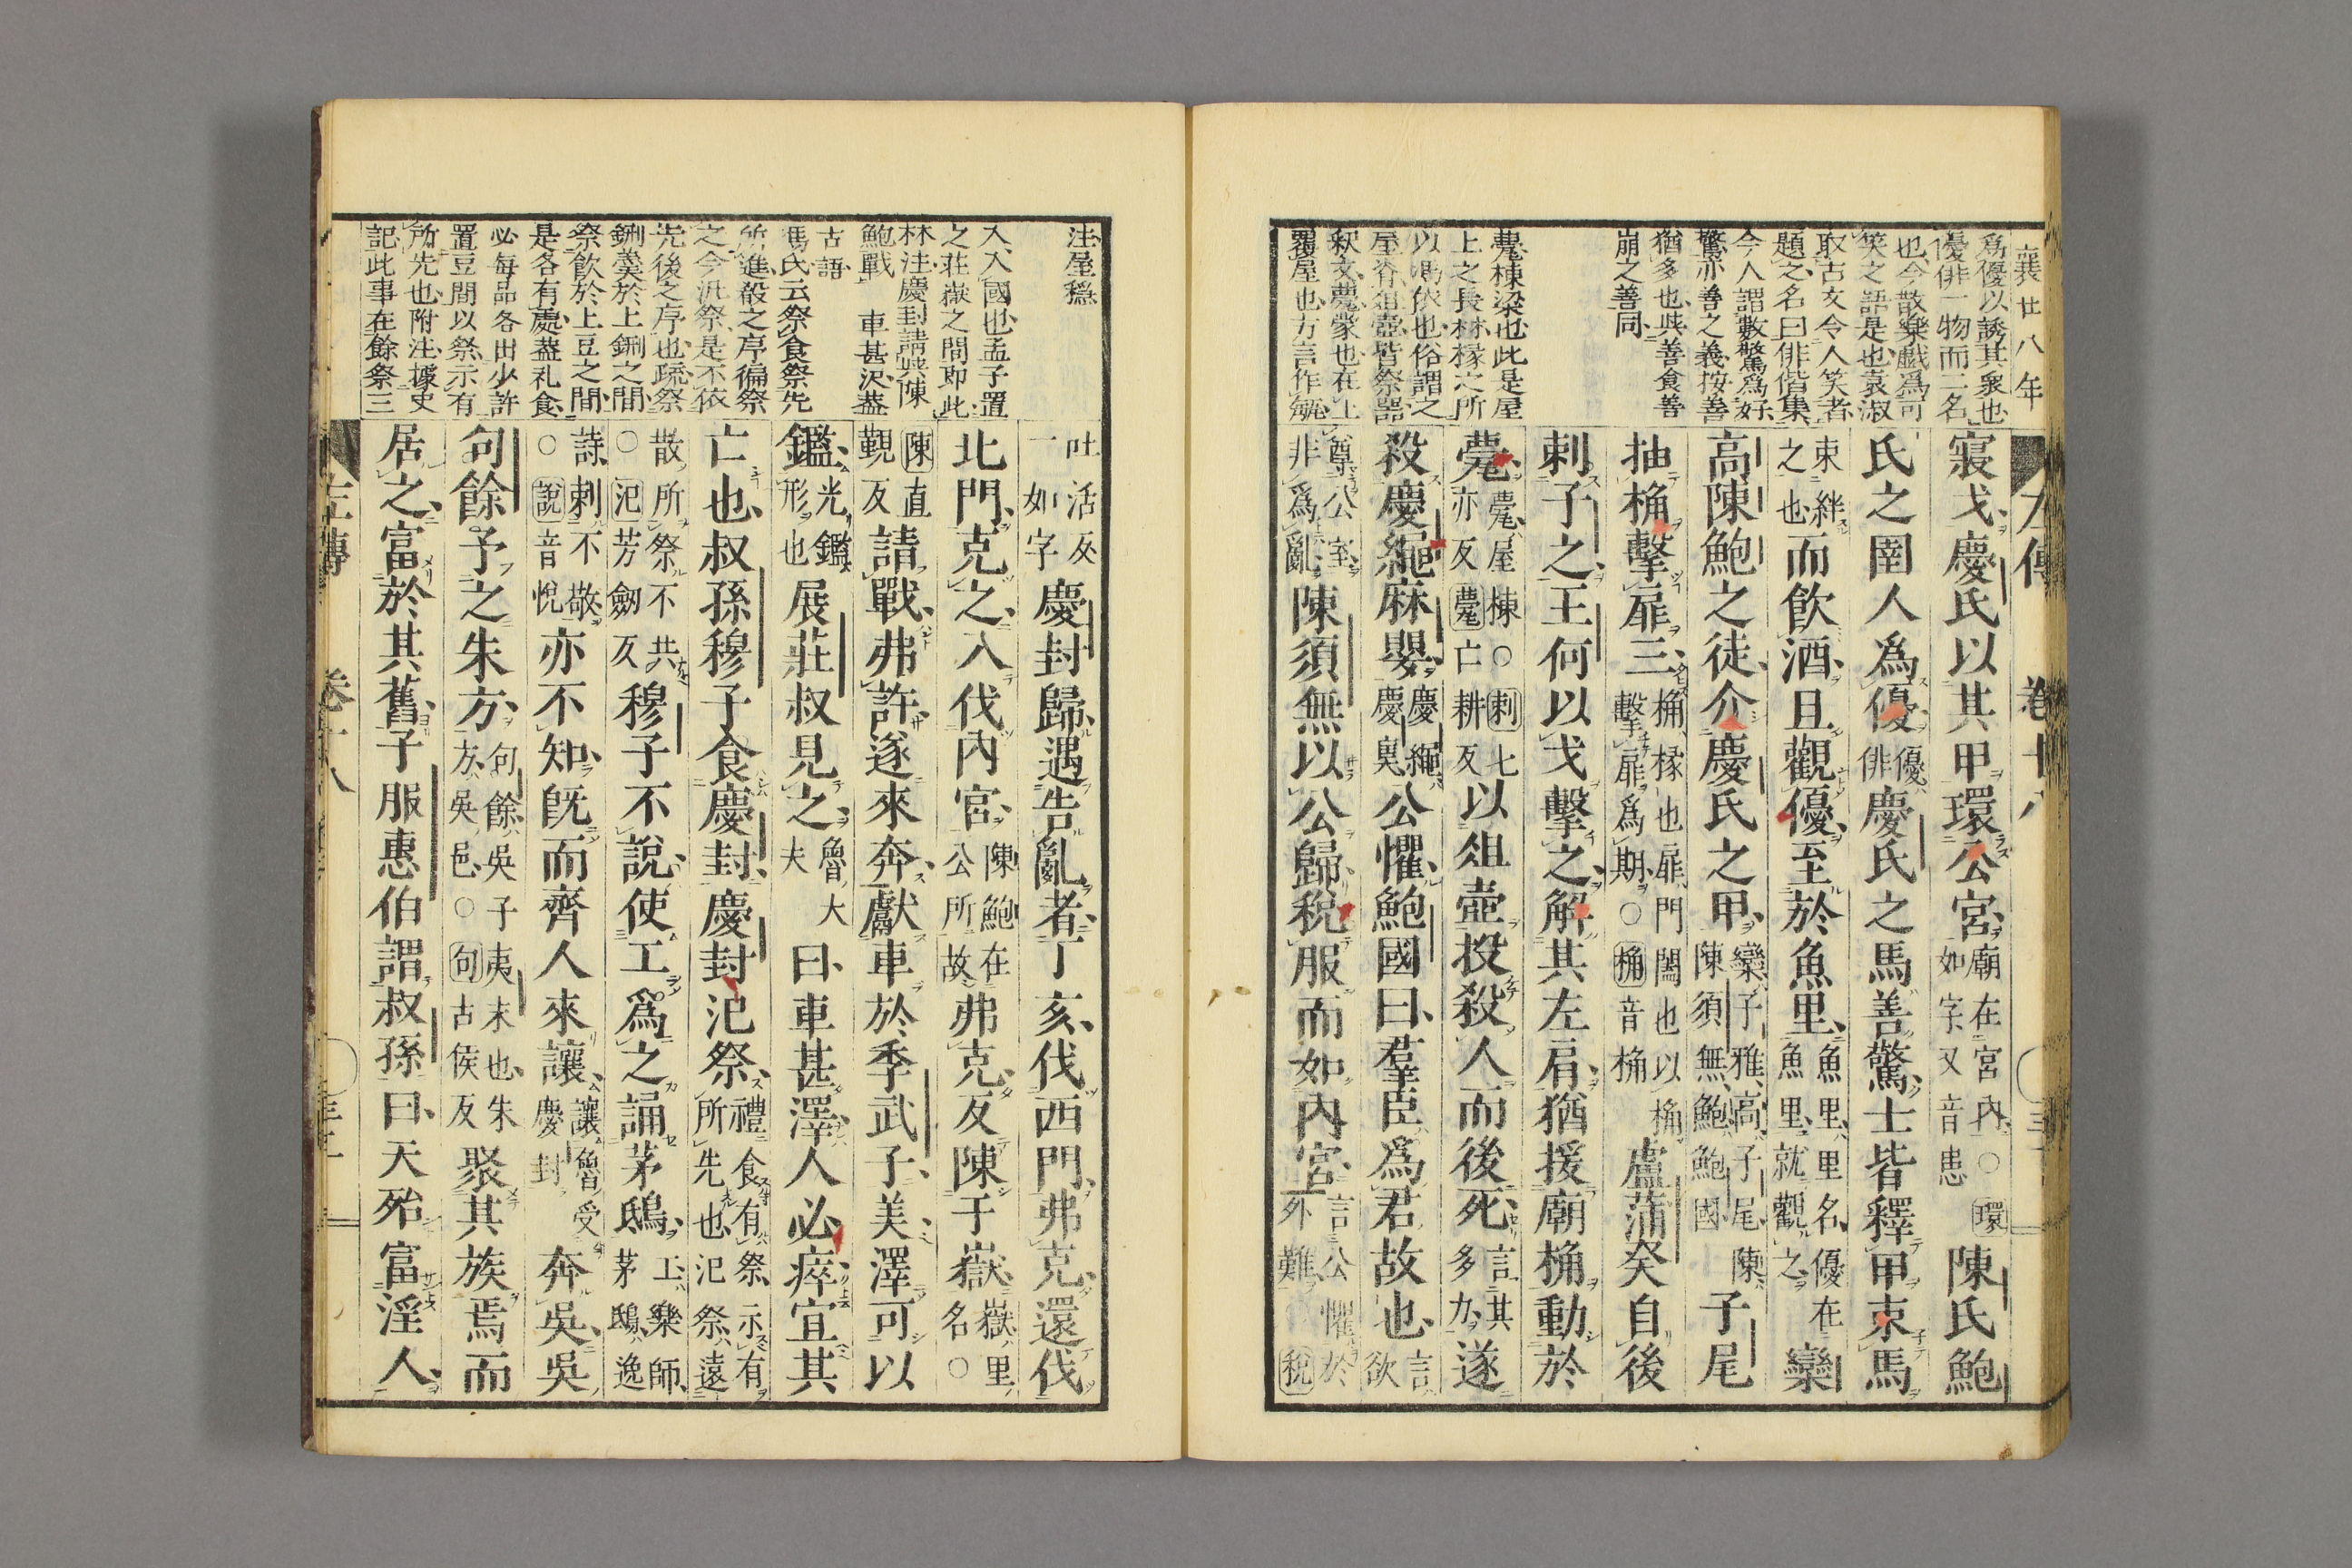 襄廿八年
爲優以誘其衆也
優俳一物而二名
也今散樂戲爲可
笑之語是也袁淑
取古文令人笑者
題之名曰俳偕集
今人謂數驚爲好
驚亦善之義按善
猶多也與善食善
崩之善同
甍棟梁也此是屋
上之長材椽之所
以馮依也俗謂之
屋脊俎壺皆祭器
釈文甍蒙也在上
覆屋也方言作甂
左傳 卷十八
寢戈慶氏以其甲環公宮廟在宮內○環如字又音患陳氏鮑
氏之圉人爲優優俳慶氏之馬善驚士皆釋甲束馬
束絆之也而飮酒且觀優至於魚里魚里里名優在魚里就觀之欒
高陳鮑之徒介慶氏之甲欒子雅高子尾陳陳須無鮑鮑國子尾
抽桷擊扉三桷椽也扉門闔也以桷擊扉爲期○桷音桷盧蒲癸自後
刺子之王何以戈擊之解其左肩猶援廟桷動於
甍甍屋棟○刺七亦反甍亡耕反以俎壺投殺人而後死言其多力遂
殺慶繩麻嬰慶繩慶奊公懼鮑國曰羣臣爲君故也言欲
尊公室非爲亂陳須無以公歸稅服而如內宮言公懼於外難稅
注屋穩
入入國也孟子置
之莊嶽之間即此
林注慶封請與陳
鮑戰 車甚沢蓋
古語
馮氏云祭食祭先
所進殽之序徧祭
之今汎祭是不依
先後之序也疏祭
鉶羮於上鉶之間
祭飮於上豆之間
是各有處葢礼食
必毎品各出少許
置豆間以祭示有
所先也附注據史
記此事在餘祭三
吐活反一如字慶封歸遇告亂者丁亥伐西門弗克還伐
北門克之入伐內宮陳鮑在公所故弗克反陳于嶽嶽里名○
陳直覲反請戰弗許遂來奔獻車於季武子美澤可以
鑑光鑑形也展莊叔見之魯大夫曰車甚澤人必瘁宜其
亡也叔孫穆子食慶封慶封汜祭禮食有祭示有所先也汜祭遠
散所祭不共○汜芳劒反穆子不說使工爲之誦茅鴟工樂師茅鴟逸
詩刺不敬○說音悅亦不知旣而齊人來讓讓魯受慶封奔吳吳
句餘予之朱方句餘吳子夷末也朱方吳邑○句古侯反聚其族焉而
居之富於其舊子服惠伯謂叔孫曰天殆富淫人
左傳 卷十八